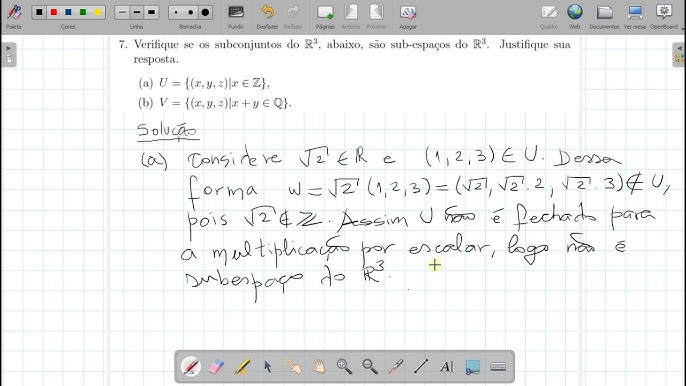 Paleta
Cores
Linha
Borracha
Fundo
Desfazer
Refazer
Páginas
Anterior
Próximo
Apagar
Quadro
Web
Documentos
Ver mesa
OpenBoard
7. Verifique se os subconjuntos do ℝ³, abaixo, são sub-espaços do ℝ³. Justifique sua
resposta.
(a) U = {(x, y, z)|x ∈ ℤ},
(b) V = {(x, y, z)|x + y ∈ ℚ}.
Solução
(a) Considere √2 ∈ ℝ e (1,2,3) ∈ U. Dessa
forma w = √2 (1,2,3) = (√2, √2 . 2, √2 . 3) ∉ U,
pois √2 ∉ ℤ. Assim U não é fechado para
a multiplicação por escalar, logo não é
subespaço do ℝ³.